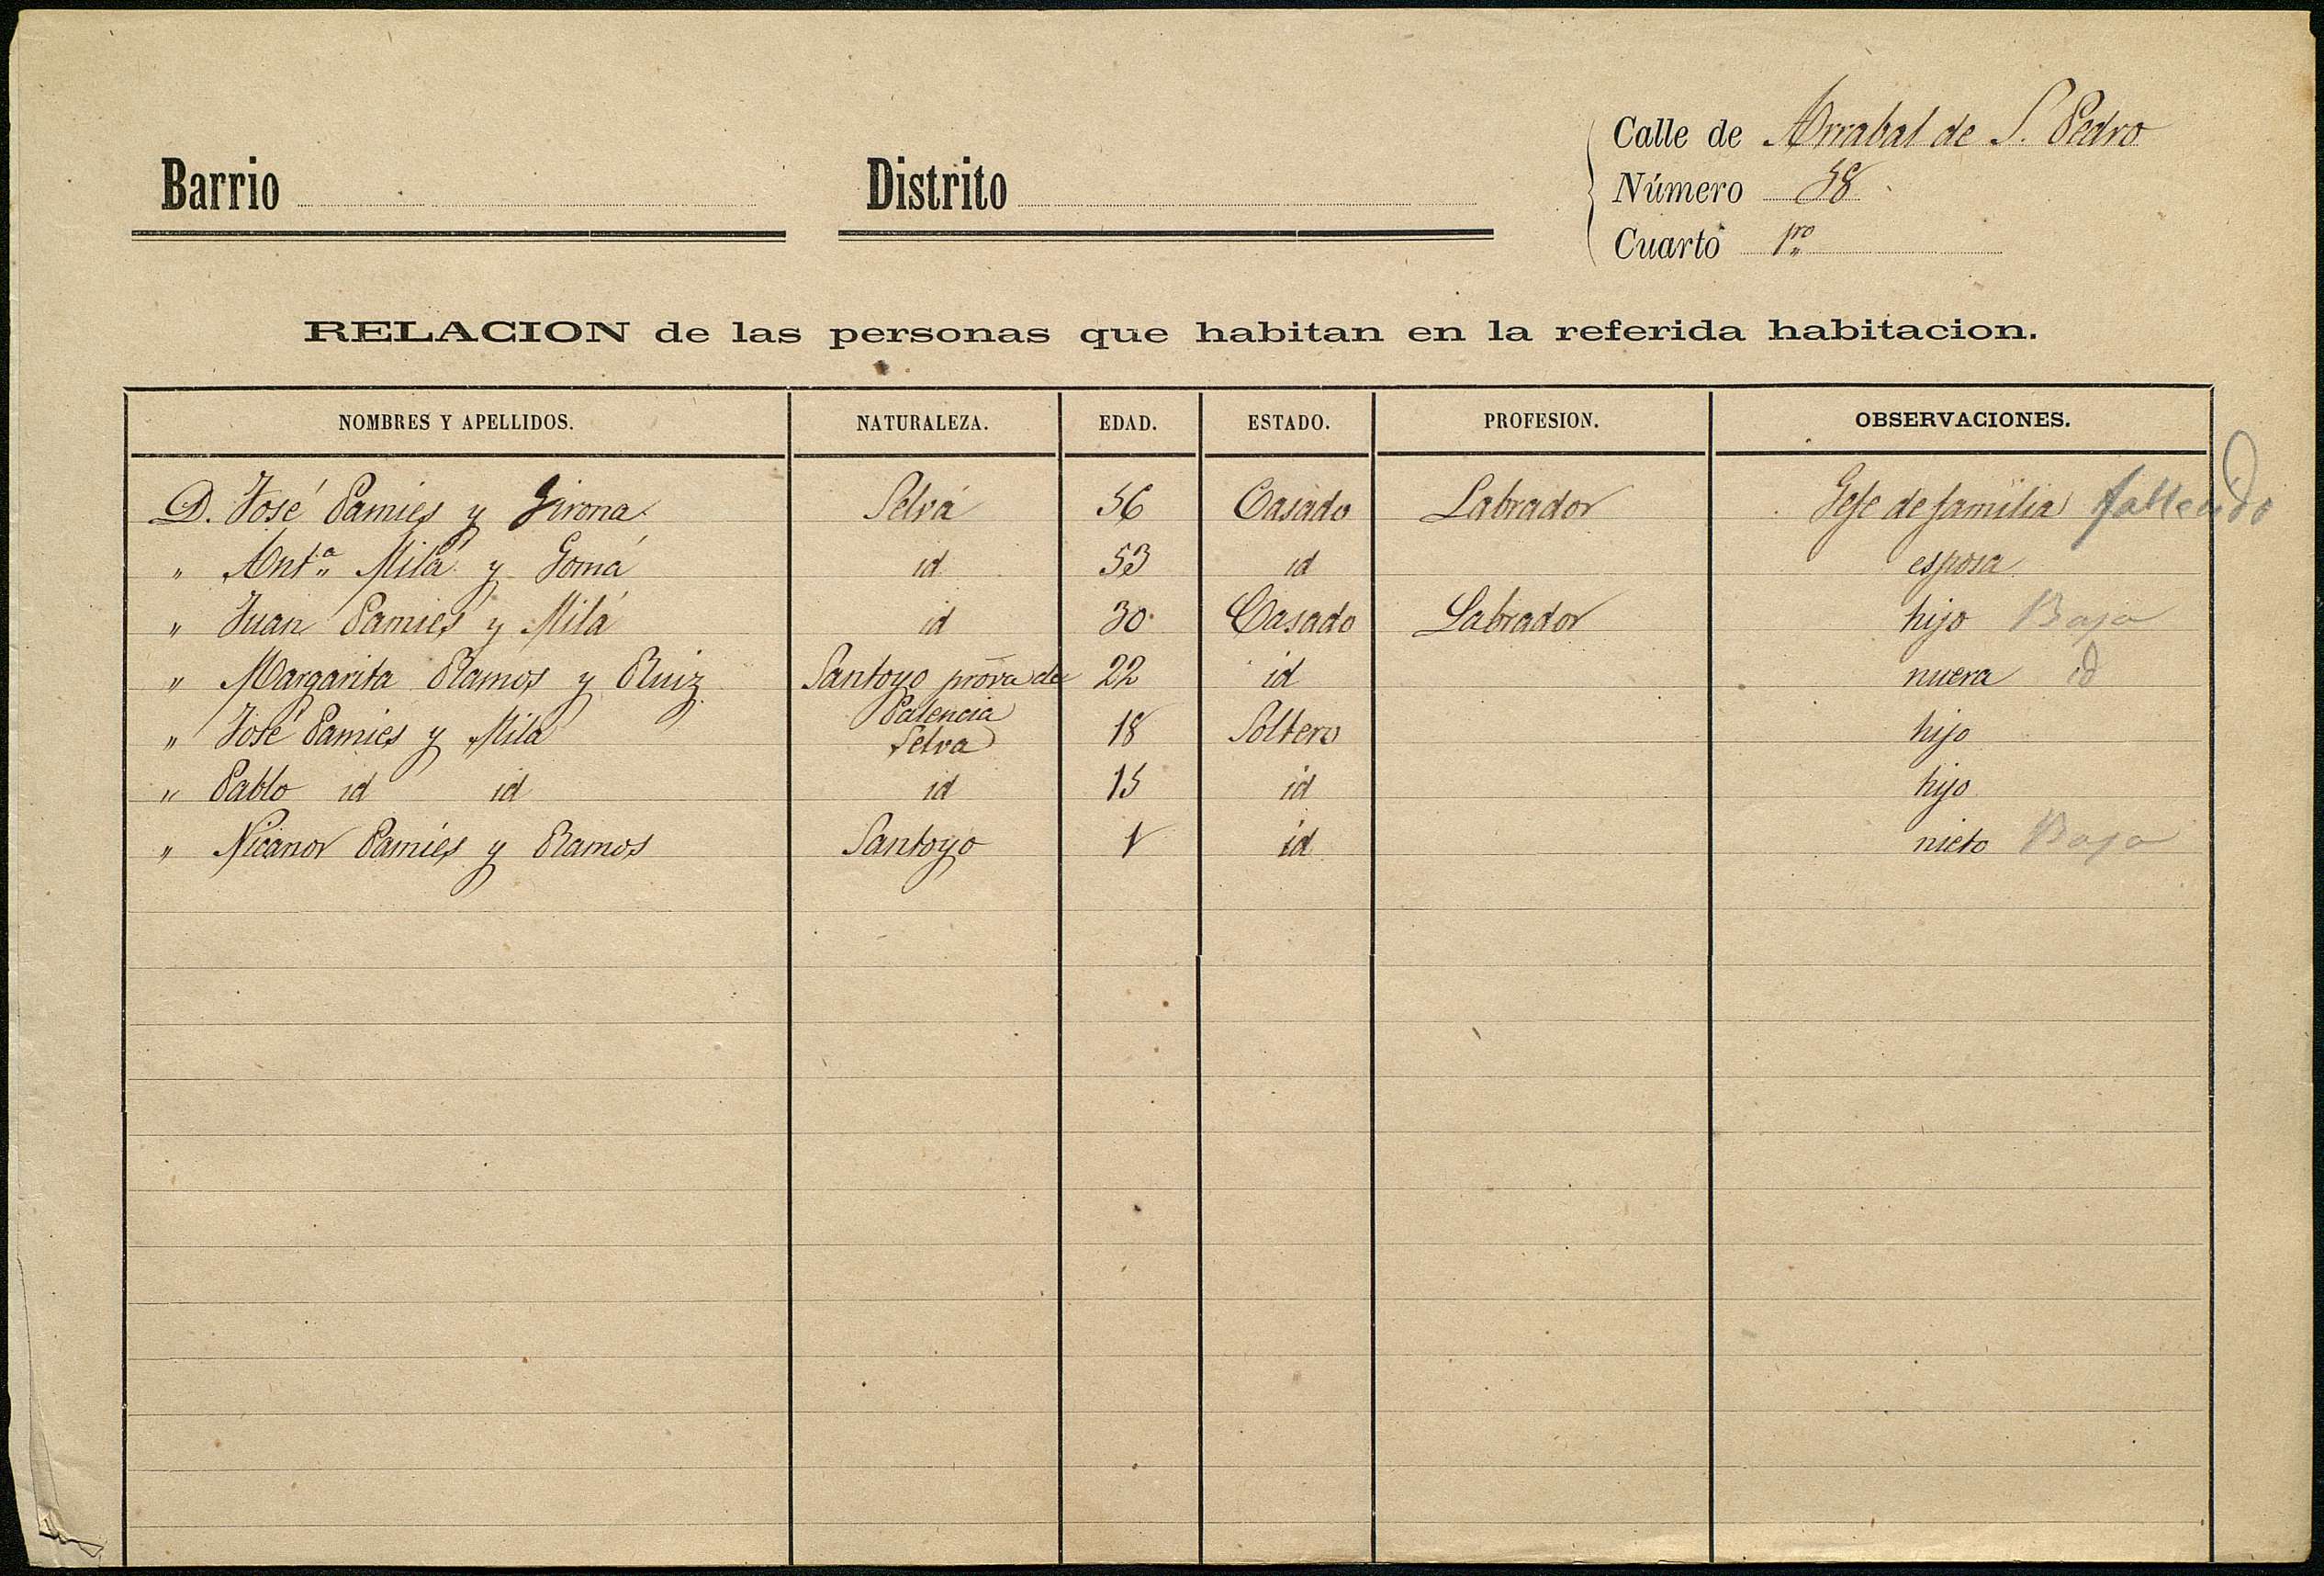 Calle de Arrabal de S. Pedro
Barrio Distrito Número 58
Cuarto 1ro
RELACION de las personas que habitan en la referida habitacion.
NOMBRES Y APELLIDOS. NATURALEZA. EDAD. ESTADO. PROFESION. OBSERVACIONES.
D. José Pamies y Girona Selva 56 Casado Labrador Gefe de familia fallecido
" Antª Milá y Gomá id 53 id esposa
" Juan Pamies y Milá id 30 Casado Labrador hijo Baja
" Margarita Ramos y Ruiz Santoyo prova de Palencia 22 id nuera id
" José Pamies y Milá Selva 18 Soltero hijo
" Pablo id id id 15 id hijo
" Nicanor Pamies y Ramos Santoyo 1 id nieto Baja